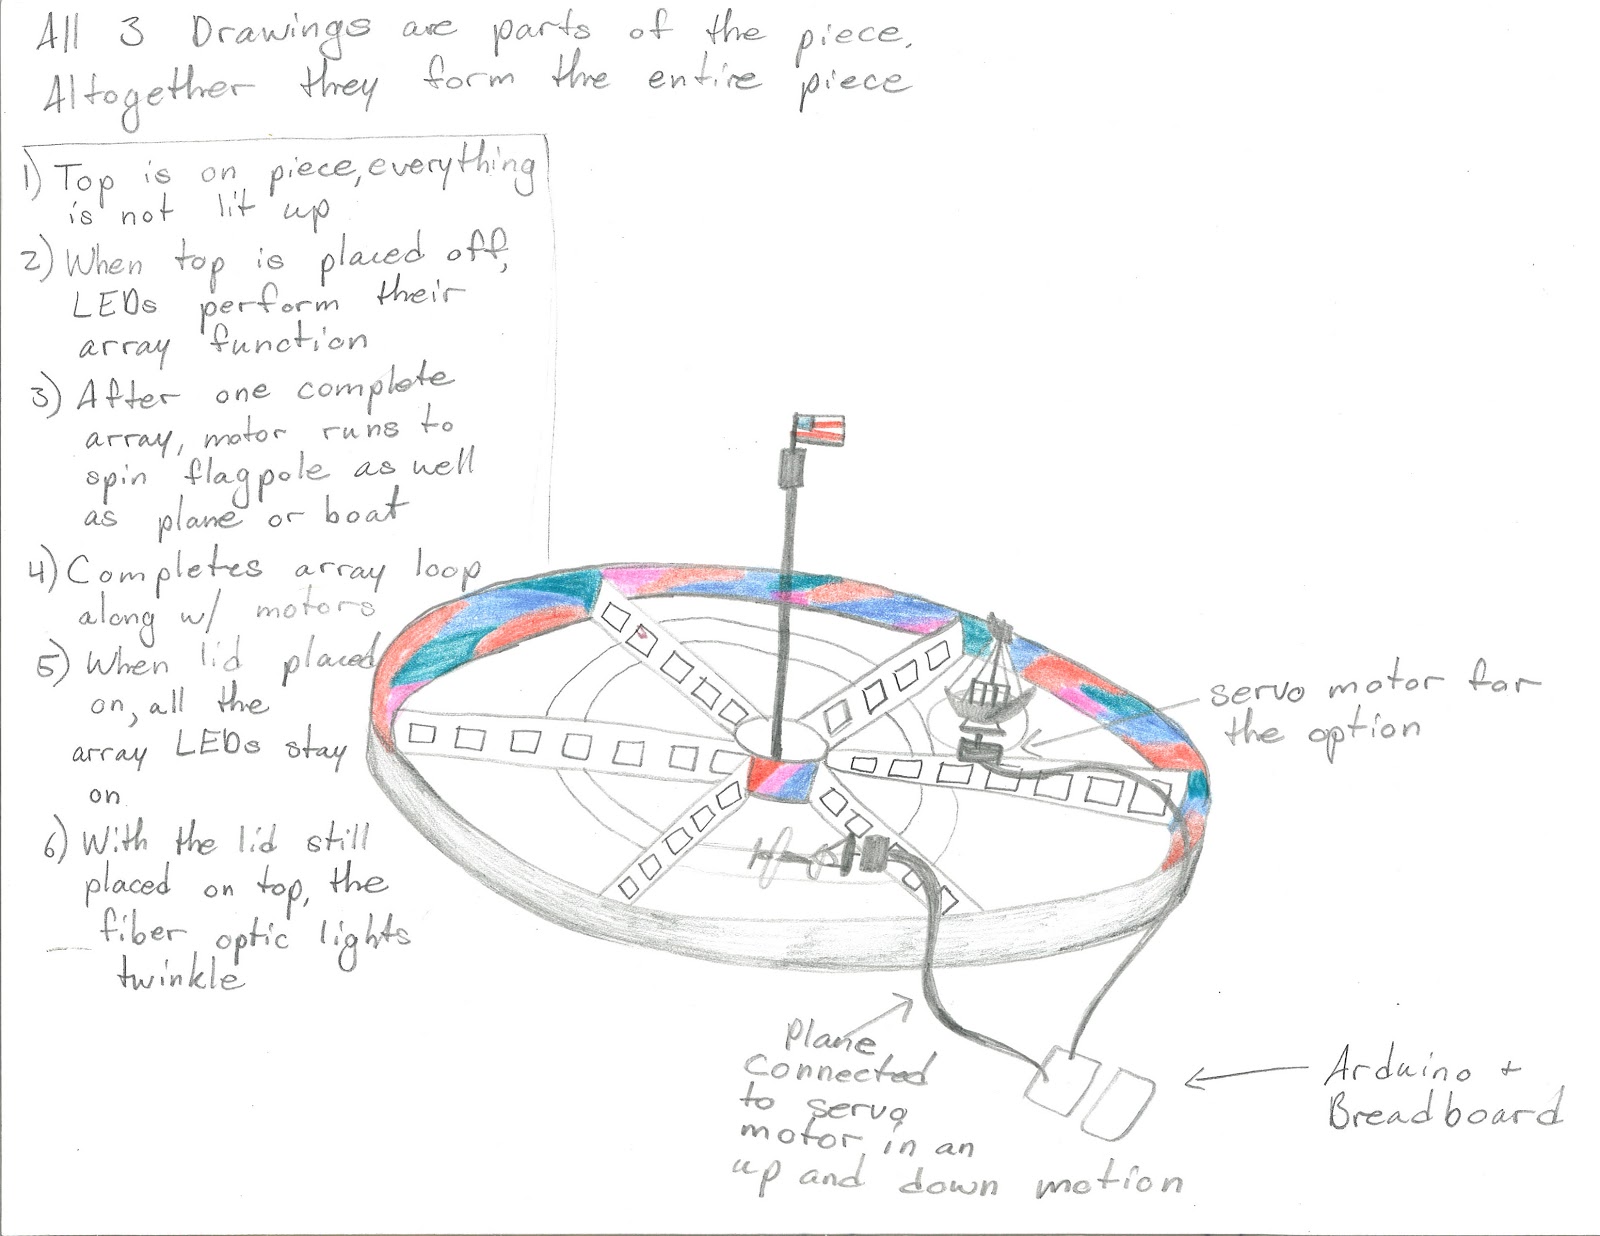 All 3 Drawings are parts of the piece.
Altogether they form the entire piece
1) Top is on piece, everything
is not lit up
2) When top is placed off,
LEDs perform their
array function
3) After one complete
array, motor runs to
spin flagpole as well
as plane or boat
4) Completes array loop
along w/ motors
5) When lid placed
on, all the
array LEDs stay
on
6) With the lid still
placed on top, the
fiber optic lights
twinkle
servo motor for
the option
Plane
connected
to servo
motor in an
up and down motion
Arduino +
Breadboard